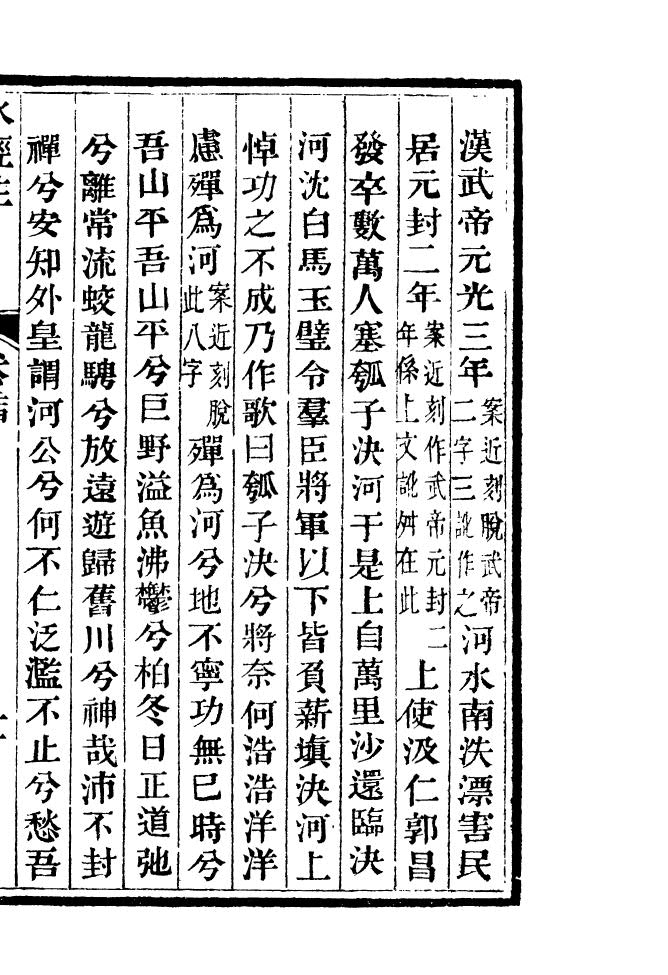 漢武帝元光三年案近刻脫武帝二字三訛作之河水南泆漂害民
居元封二年案近刻作武帝元封二年係上文訛舛在此上使汲仁郭昌
發卒數萬人塞瓠子決河于是上自萬里沙還臨決
河沈白馬玉璧令羣臣將軍以下皆負薪塡決河上
悼功之不成乃作歌曰瓠子決兮將奈何浩浩洋洋
慮殫爲河案近刻脫此八字殫爲河兮地不寧功無已時兮
吾山平吾山平兮巨野溢魚沸鬱兮柏冬日正道弛
兮離常流蛟龍騁兮放遠遊歸舊川兮神哉沛不封
禪兮安知外皇謂河公兮何不仁泛濫不止兮愁吾
水經注